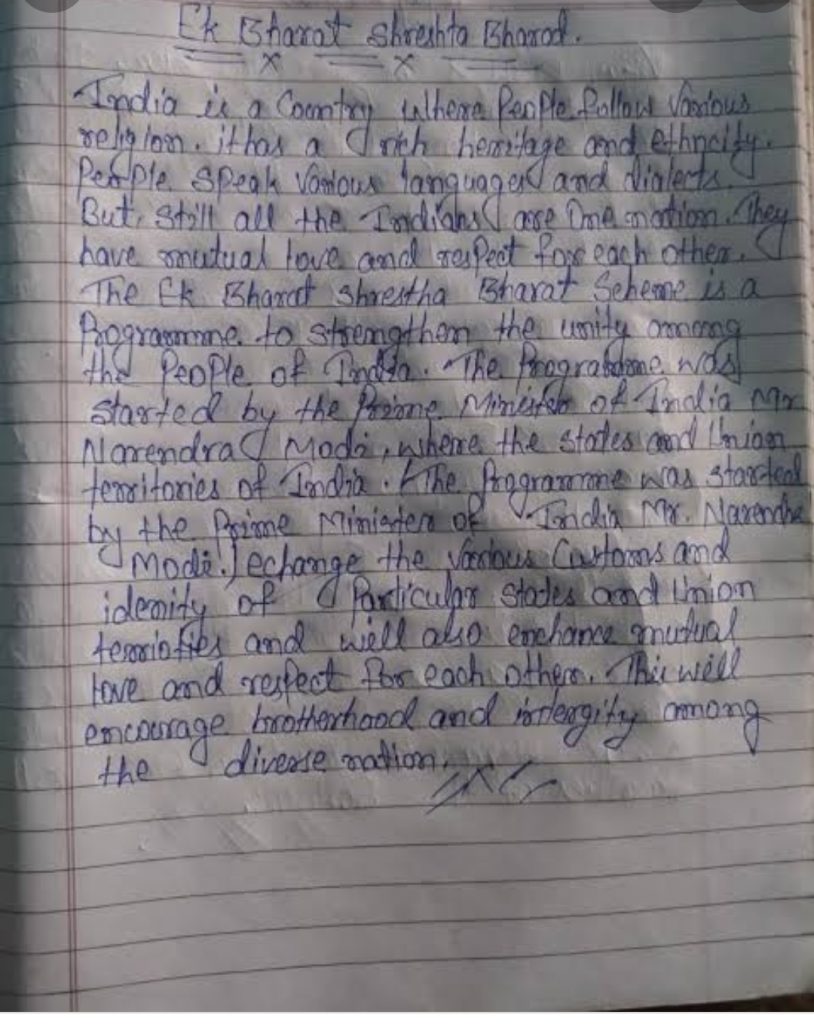 Ek Bharat Shreshta Bharad.
India is a Country Where People follow Various
religion. it has a rich heritage and ethncity.
People Speak Various languages and dialects.
But, Still all the Indians are One nation. They
have mutual love and respect for each other.
The Ek Bharat Shrestha Bharat Scheme is a
Programme to strengthen the unity among
the People of India. The Programme was
started by the Prime Minister of India Mr.
Narendra Modi, where the states and Union
territories of India. The Programme was started
by the Prime Minister of India Mr. Narendra
Modi. echange the various Customs and
idenity of Particular states and Union
and will also enchance mutual
love and respect for each other. This will
encourage brotherhood and intergity among
the diverse nation.